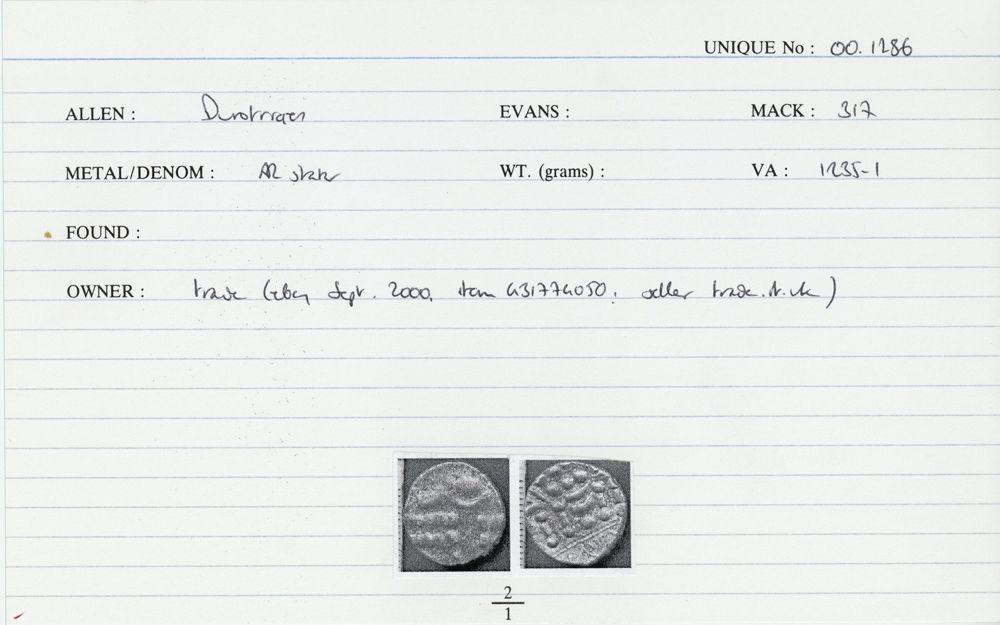 UNIQUE No : 00.1286
ALLEN : Durotrigan EVANS : MACK : 317
METAL/DENOM : AR stater WT. (grams) : VA : 1235-1
FOUND :
OWNER : trade (ebay Sept. 2000, item 431774050; seller trade.it.uk)
2
1